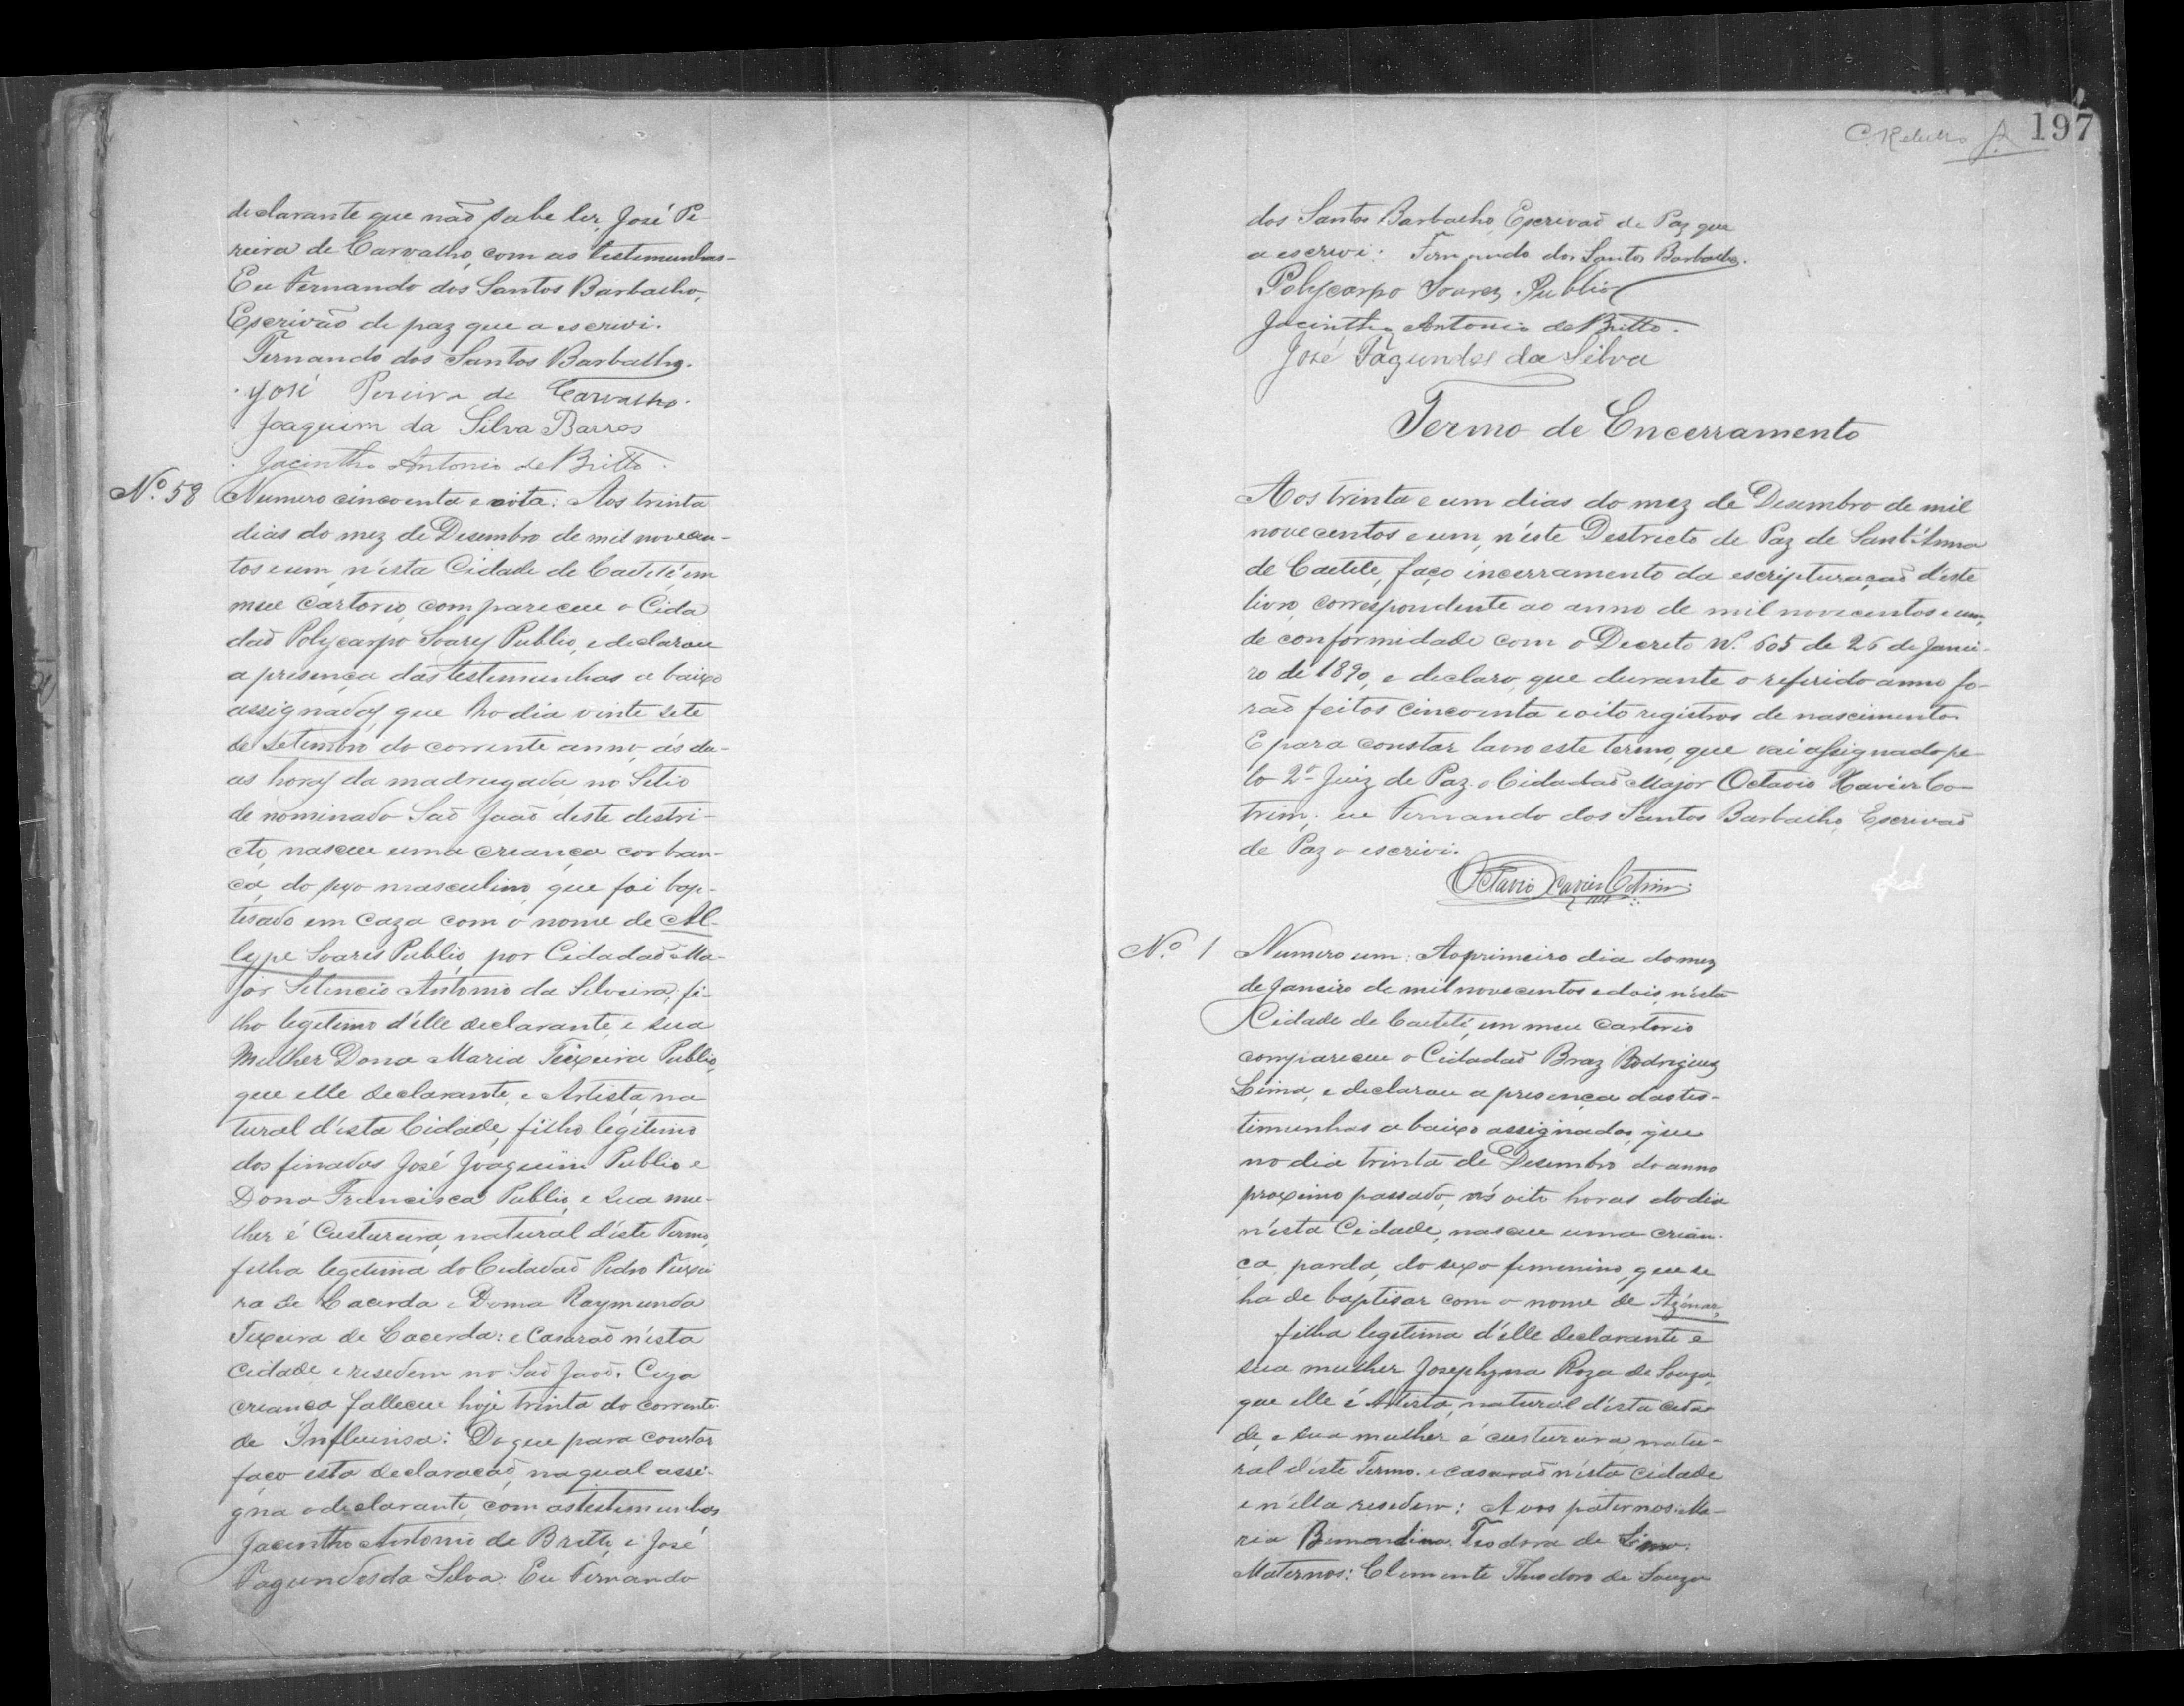 declarante que não sabe ler, José Pe-
reira de Carvalho, com as testemunhas-
Eu Fernando dos Santos Barbalho,
Escrivão de paz que a escrivi.
Fernando dos Santos Barbalho.
José Pereira de Carvalho.
Joaquim da Silva Barros
Jacintho Antonio de Britto.
Nº. 58 Numero cincoenta e oito: Aos trinta
dias do mez de Desembro de mil novecen-
tos e um, n'esta Cidade de Caeteté em
meu Cartorio, compareceu o Cida
daõ Polycarpo Soares Publio, e declarou
a presença das testemunhas a baixo
assignadas, que no dia vinte sete
de Setembro do corrente anno, ás du-
as horas da madrugada, no Sitio
de nominado Saõ Joaõ deste destri-
cto, nasceu uma criança cor bran-
ca, do sexo masculino, que foi bap-
tisado em caza com o nome de Al-
lype Soares Publio, por Cidadaõ Ma-
jor Silencio Antonio da Silveira, fi-
lho legitimo d'elle declarante, e sua
Mulher Dona Maria Teixeira Publio,
que elle declarante, e Artista, na
tural d'esta Cidade, filho légitimo
dos finados José Joaquim Publio e
Dona Francisca Publio, e sua mu-
lher é Custureira, natural d'este Termo,
filha legetima do Cidadaõ Pedro Teixei
ra de Lacerda e Dona Raymunda
Teixeira de Lacerda: e Casaraõ n'esta
Cidade e resedem no Saõ Joaõ. Cuja
creança falleceu hoje trinta do corrente
de Influinsa: Do que para constar
faço esta declaracaõ, na qual assi-
gna o declarante, com as testemunhas
Jacintho Antonio de Britto, e José
Fagundes da Silva. Eu Fernando
197
dos Santos Barbalho, Escrivaõ de Paz que
a escrivi: Fernando dos Santos Barbalho.
Polycarpo Soares Publio
Jacintho Antonio de Britto.
José Fagundes da Silva
Termo de Encerramento
Aos trinta e um dias do mez de Desembro de mil
novecentos e um, n'este Destricto de Paz de Sant'Anna
de Caetete, faço incerramento da escripturaçaõ d'este
livro, correspondente ao anno de mil novecentos e um,
de conformidade com o Decreto Nº. 605 de 26 de Janei-
ro de 1890, e declaro, que durante o referido anno fo-
raõ feitos cincoenta e oito registros de nascimento
E para constar lavro este termo, que vai assignado pe-
lo 2º Juiz de Paz o Cidadaõ Major Octavio Xavier Co-
trim; eu Fernando dos Santos Barbalho, Escrivaõ
de Paz o escrivi.
Octavio Xavier Cotrim
Nº. 1 Numero um: Ao primeiro dia do mez
de Janeiro de mil novecentos e dois, n'esta
Cidade de Caeteté, em meu Cartorio
compareceu o Cidadaõ Braz Rodrigues
Lima, e declarou a presença das tes-
timunhas a baixo assignadas, que
no dia trinta de Desembro do anno
proximo passado, ás oito horas do dia
n'esta Cidade, nasceu uma crian-
ça, parda, do sexo femenino, que se
ha de baptisar com o nome de
filha legetima d'elle declarante e
sua mulher Josephyna Roza de Souza,
que elle é Artista, natural d'esta cida
de, e sua mulher é custureira, natu-
ral d'este Termo. e casaraõ n'esta Cidade
e n'ella resedem: Avos paternos: Ma-
ria Bernardina Teodora de Lima.
Maternos: Clemente Theodoro de Souza